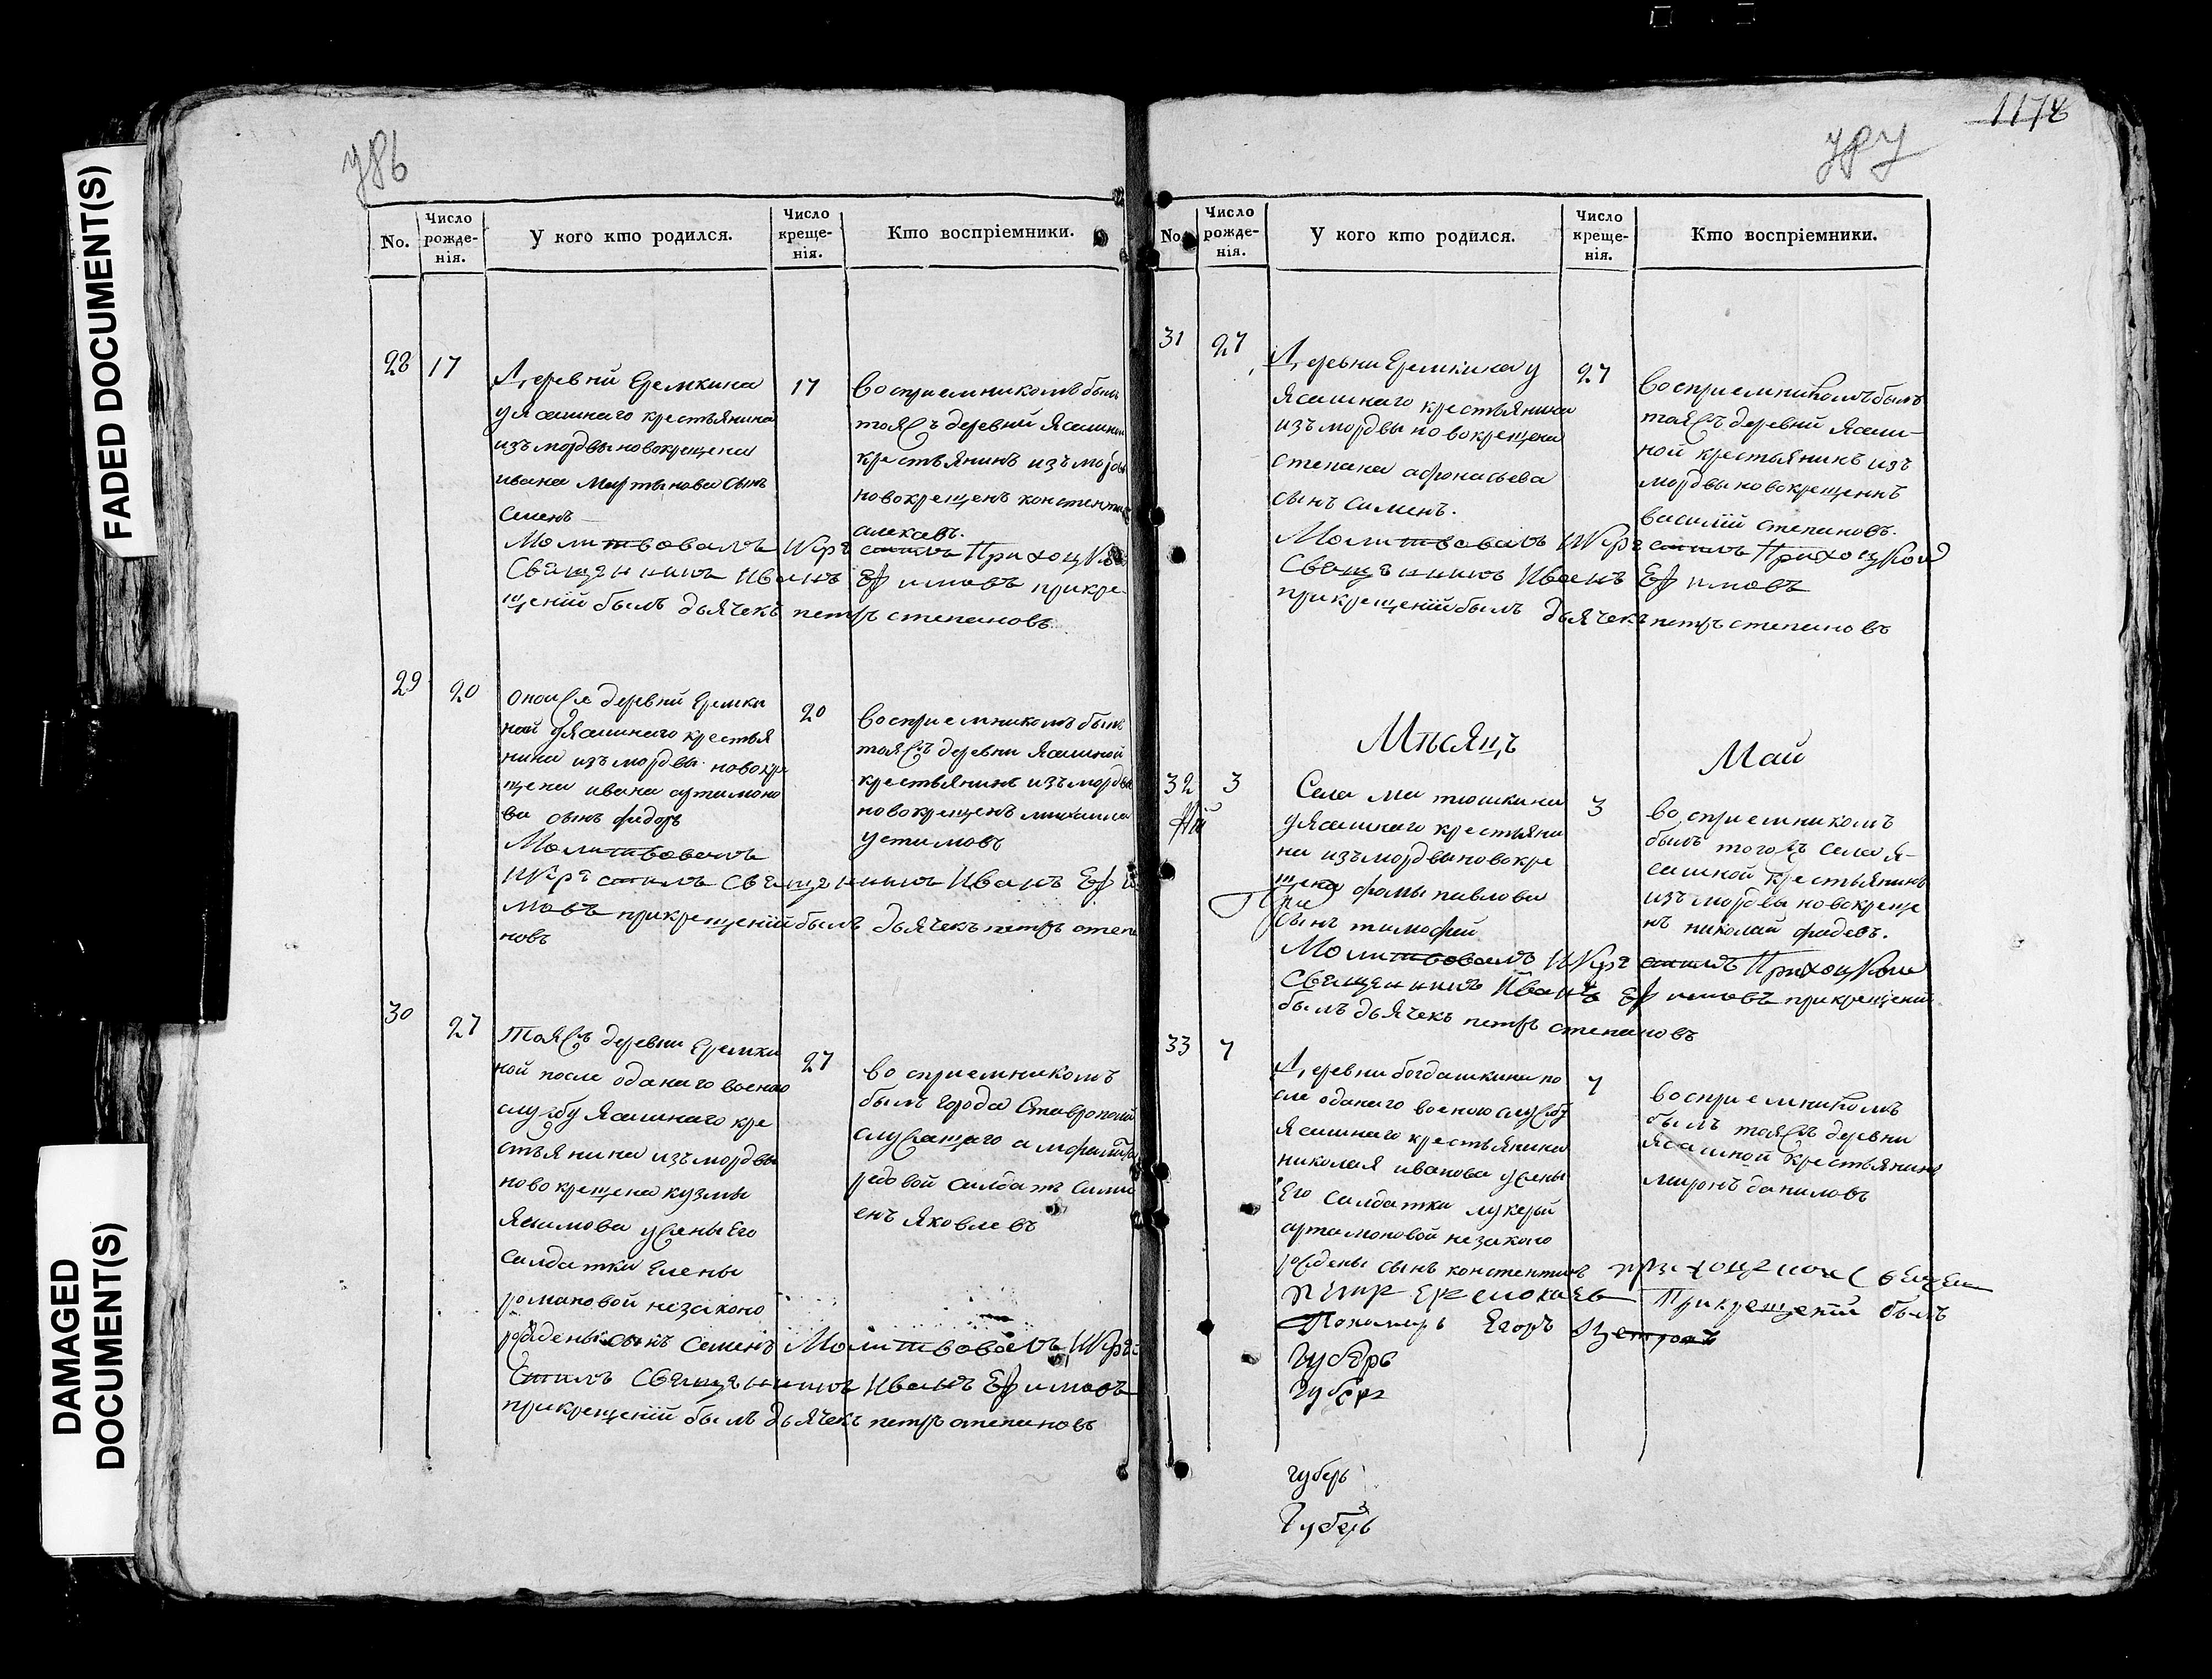 FADED DOCUMENT(S)
DAMAGED DOCUMENT(S)
No.
Число рожде- нія.
У кого кто родился.
Число креще- нія.
Кто воспріемники.
28
17
Деревни Еремкина
у Ясашнаго крестьянина
изъ мордвы новокрещена
ивана мартынова сынъ
Семенъ
17
Восприемникомъ былъ
тояжъ деревни Ясашной
крестьянинъ изъ мордвы
новокрещенъ
Молитвовалъ и крестилъ Приходцкой
Священникъ Иванъ Ефимовъ прикре-
щении былъ дьячекъ петръ степановъ
29
20
оноя же деревни Еремки
ной у Ясашнаго крестья
нина изъ мордвы новокре
щена ивана артамоно
ва сынъ фидоръ
20
восприемникомъ былъ
тояжъ деревни Ясашной
крестьянинъ изъ мордвы
новокрещенъ михаила
устимовъ
Молитвовалъ
и крестилъ Священникъ Иванъ Ефи
мовъ прикрещении былъ дьячекъ петръ степа
новъ
30
27
тояжъ деревни Еремки
ной после оданаго военую
службу Ясашнаго кре
стьянина изъ мордвы
новокрещена кузмы
Якимова у жены Его
салдатки Елены
романовой незаконо
рожденый сынъ Семенъ
27
восприемникомъ
былъ города Ставрополя
служащаго
редовой салдатъ Сими
енъ Яковлевъ
Молитвовалъ и кре
стилъ Священникъ Иванъ Ефимовъ
прикрещении былъ дьячекъ петръ степановъ
1174
No
Число рожде- нія.
У кого кто родился.
Число креще- нія.
Кто воспріемники.
31
27
Деревни Еремкина у
Ясашнаго крестьянина
изъ мордвы новокрещена
степана афонасьева
сынъ Сименъ.
27
восприемникомъ былъ
тояжъ деревни Ясаш-
ной крестьянинъ изъ
мордвы новокрещенъ
василий степановъ.
Молитвовалъ и крестилъ Приходцкой
Священникъ Иванъ Ефимовъ
прикрещении былъ дьячекъ петръ степановъ
Мѣсяцъ Май
32
3
Села Матюшкина
у Ясашнаго крестьяни
на изъ мордвы новокре
щена фомы павлова
сынъ тимофей
3
восприемникомъ
былъ тогожъ села Я-
сашной крестьянинъ
изъ мордвы новокреще
нъ николай фадеевъ.
Молитвовалъ и крестилъ Приходцкой
Священникъ Иванъ Ефимовъ прикрещении
былъ дьячекъ петръ степановъ
33
7
Деревни богдашкина по
сле оданаго военою службу
Ясашнаго крестьянина
николая иванова у жены
Его Салдатки лукерьи
артамоновой незаконо
рождены сынъ константинъ
7
восприемникомъ
былъ тояжъ деревни
Ясашной крестьянинъ
миронъ даниловъ
петръ Прикрещении былъ
Пономарь Егоръ Петровъ
Губерь
Губер
губерь
Губерь